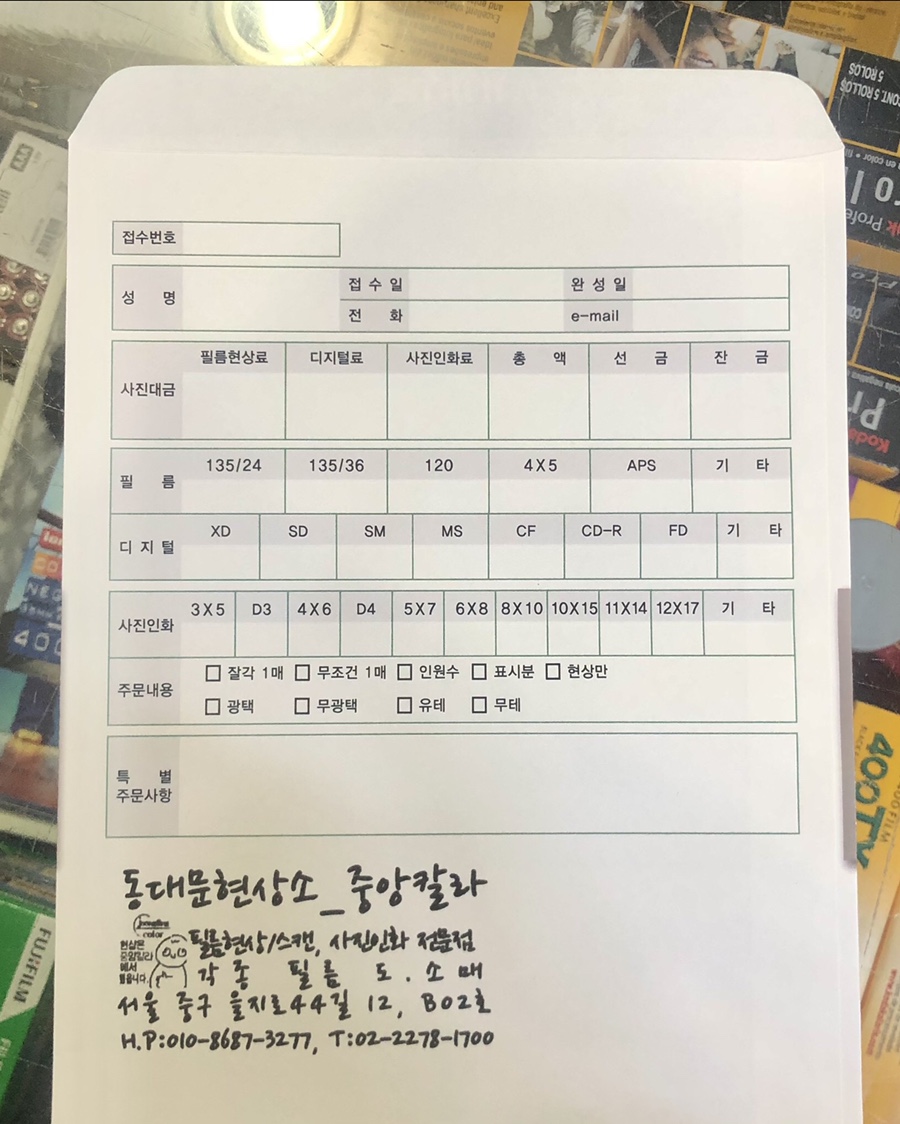 CONT. 5 ROLLOS
5 ROLOS
접수번호
성 명
접 수 일
완 성 일
전 화
e-mail
사진대금
필름현상료 디지털료 사진인화료 총 액 선 금 잔 금
필 름
135/24 135/36 120 4X5 APS 기 타
디 지 털
XD SD SM MS CF CD-R FD 기 타
사진인화
3X5 D3 4X6 D4 5X7 6X8 8X10 10X15 11X14 12X17 기 타
주문내용
잘각 1매 무조건 1매 인원수 표시분 현상만
광택 무광택 유테 무테
특 별
주문사항
동대문현상소_중앙칼라
color
현상은
중앙칼라
에서
필름현상/스캔, 사진인화 전문점
각 종 필 름 도 . 소 매
서울 중구 을지로44길 12, B02호
H.P:010-8687-3277, T:02-2278-1700
FUJIFILM
400TX
Kodak
400
AAA